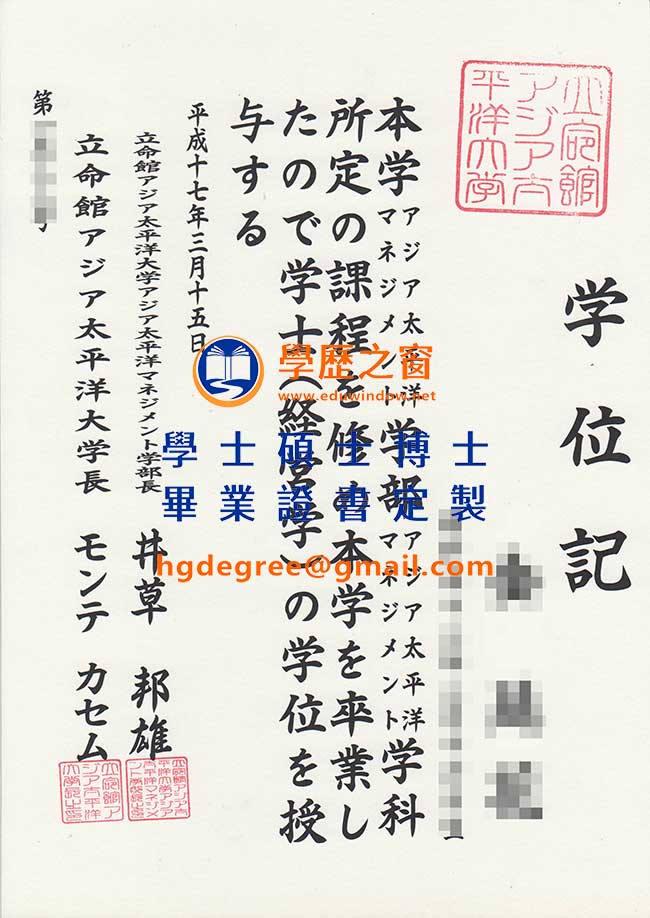 立命館
アジア太
平洋大学
学位記
本学アジア太平洋マネジメント学部アジア太平洋マネジメント学科
所定の課程を修め本学を卒業し
たので学士(経営学)の学位を授
与する
平成十七年三月十五日
立命館アジア太平洋大学アジア太平洋マネジメント学部長 井草 邦雄
立命館アジア太平洋大学長 モンテ カセム
第
學歷之窗
www.eduwindow.net
學士碩士博士
畢業證書定製
hgdegree@gmail.com